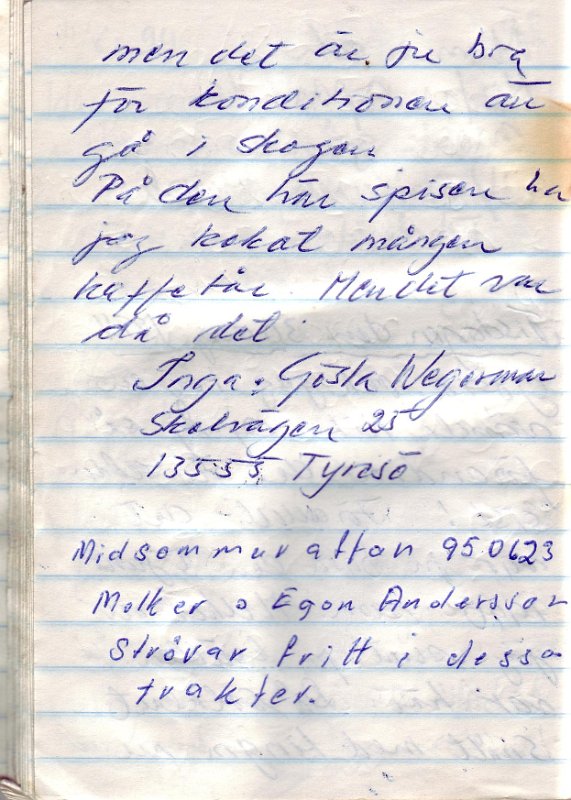 men det är ju bra
för konditionen än
gå i skogen
På den här spisen ha
jag kokat mången
kaffetår. Men det var
då det.
Inga o Gösta Wegerman
Skolvägen 25
13555 Tyresö
Midsommarafton 950623
Molker o Egon Andersson
Strövar fritt i dessa
trakter.